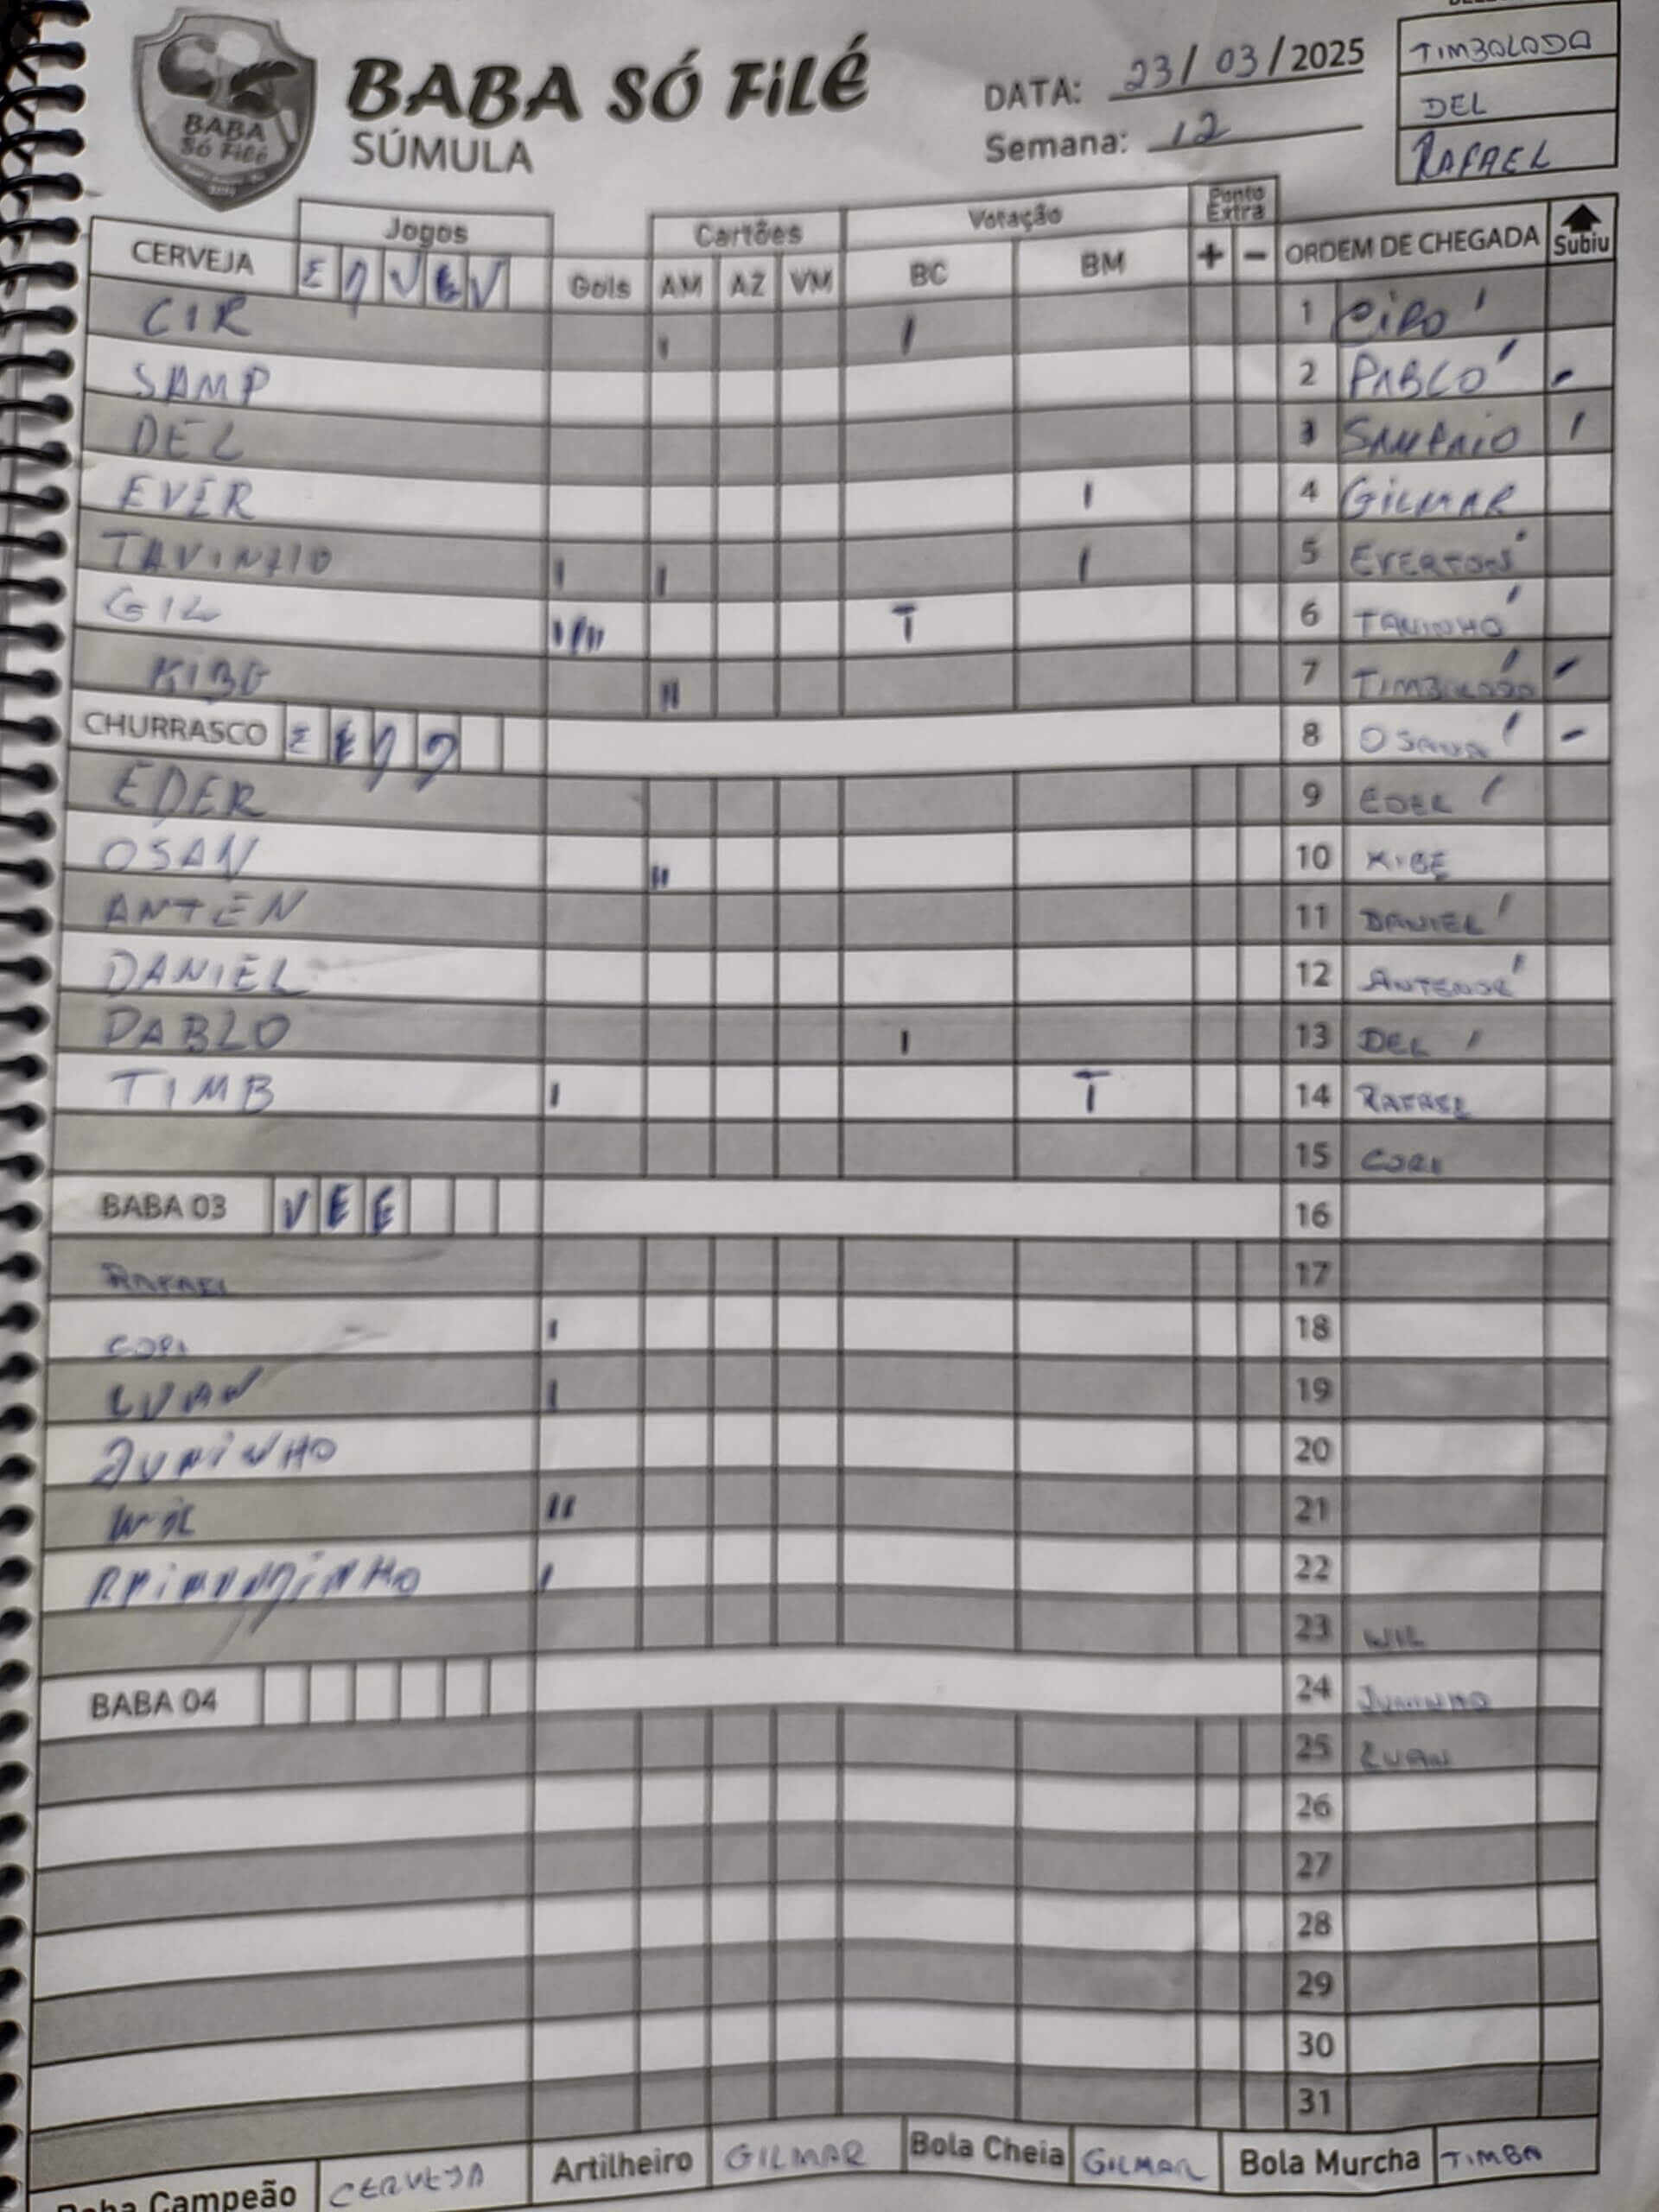 BABA SÓ FiLÉ
SÚMULA
BABA
Só Filé
DATA: 23/03/2025
Semana: 12
TIMBALADA
DEL
RAFAEL
Jogos
Cartões
Votação
Ponto Extra
CERVEJA E D V E V
Gols AM AZ VM BC BM + − ORDEM DE CHEGADA Subiu
CIR I I 1 CIRO
SAMP 2 PABLO
DEL 3 SAMPAIO I
EVER I 4 GILMAR
TAVINHO I I I 5 EVERTON
GIL IIII T 6 TAVINHO
KIBE II 7 TIMBALADA
CHURRASCO E E D D 8 OSANA
EDER 9 EDER
OSAN II 10 KIBE
ANTEN 11 DANIEL
DANIEL 12 ANTENOR
PABLO I 13 DEL
TIMB I T 14 RAFAEL
15 CORI
BABA 03 V E E 16
RAFAEL 17
CORI I 18
LUAN I 19
JUNINHO 20
WIL II 21
RAIMUNDINHO I 22
23 WIL
BABA 04 24 JUNINHO
25 LUAN
26
27
28
29
30
31
Baba Campeão CERVEJA Artilheiro GILMAR Bola Cheia GILMAR Bola Murcha TIMBA